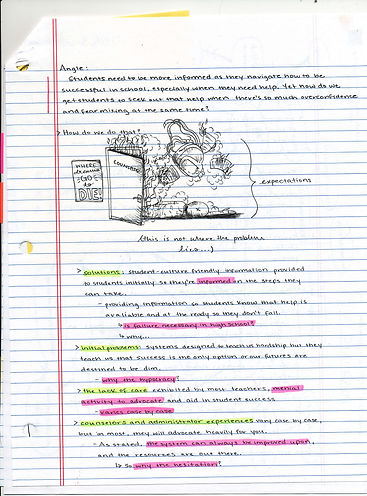 Angle:
Students need to be more informed as they navigate how to be
successful in school, especially when they need help. Yet how do we
get students to seek out that help when there's so much overconfidence
and fear mixing at the same time?
> How do we do that?
COUNSELOR
WHERE
dreams
GO
to
DIE!
expectations
(this is not where the problem
lies...)
> solutions: student-culture friendly information provided
to students initially so they're informed on the steps they
can take.
- providing information so students know that help is
available and at the ready so they don't fail.
↳ is failure necessary in high school?
↳ why...
> initial problems: systems designed to teach us hardship but they
teach us that success is the only option or our futures are
destined to be dim.
- why the hypocracy?
> the lack of care exhibited by most teachers, menial
activity to advocate and aid in student success
- varies case by case
> counselors and administrator experiences vary case by case,
but in most, they will advocate heavily for you.
- As stated, the system can always be improved upon,
and the resources are out there.
↳ so why the hesitation?